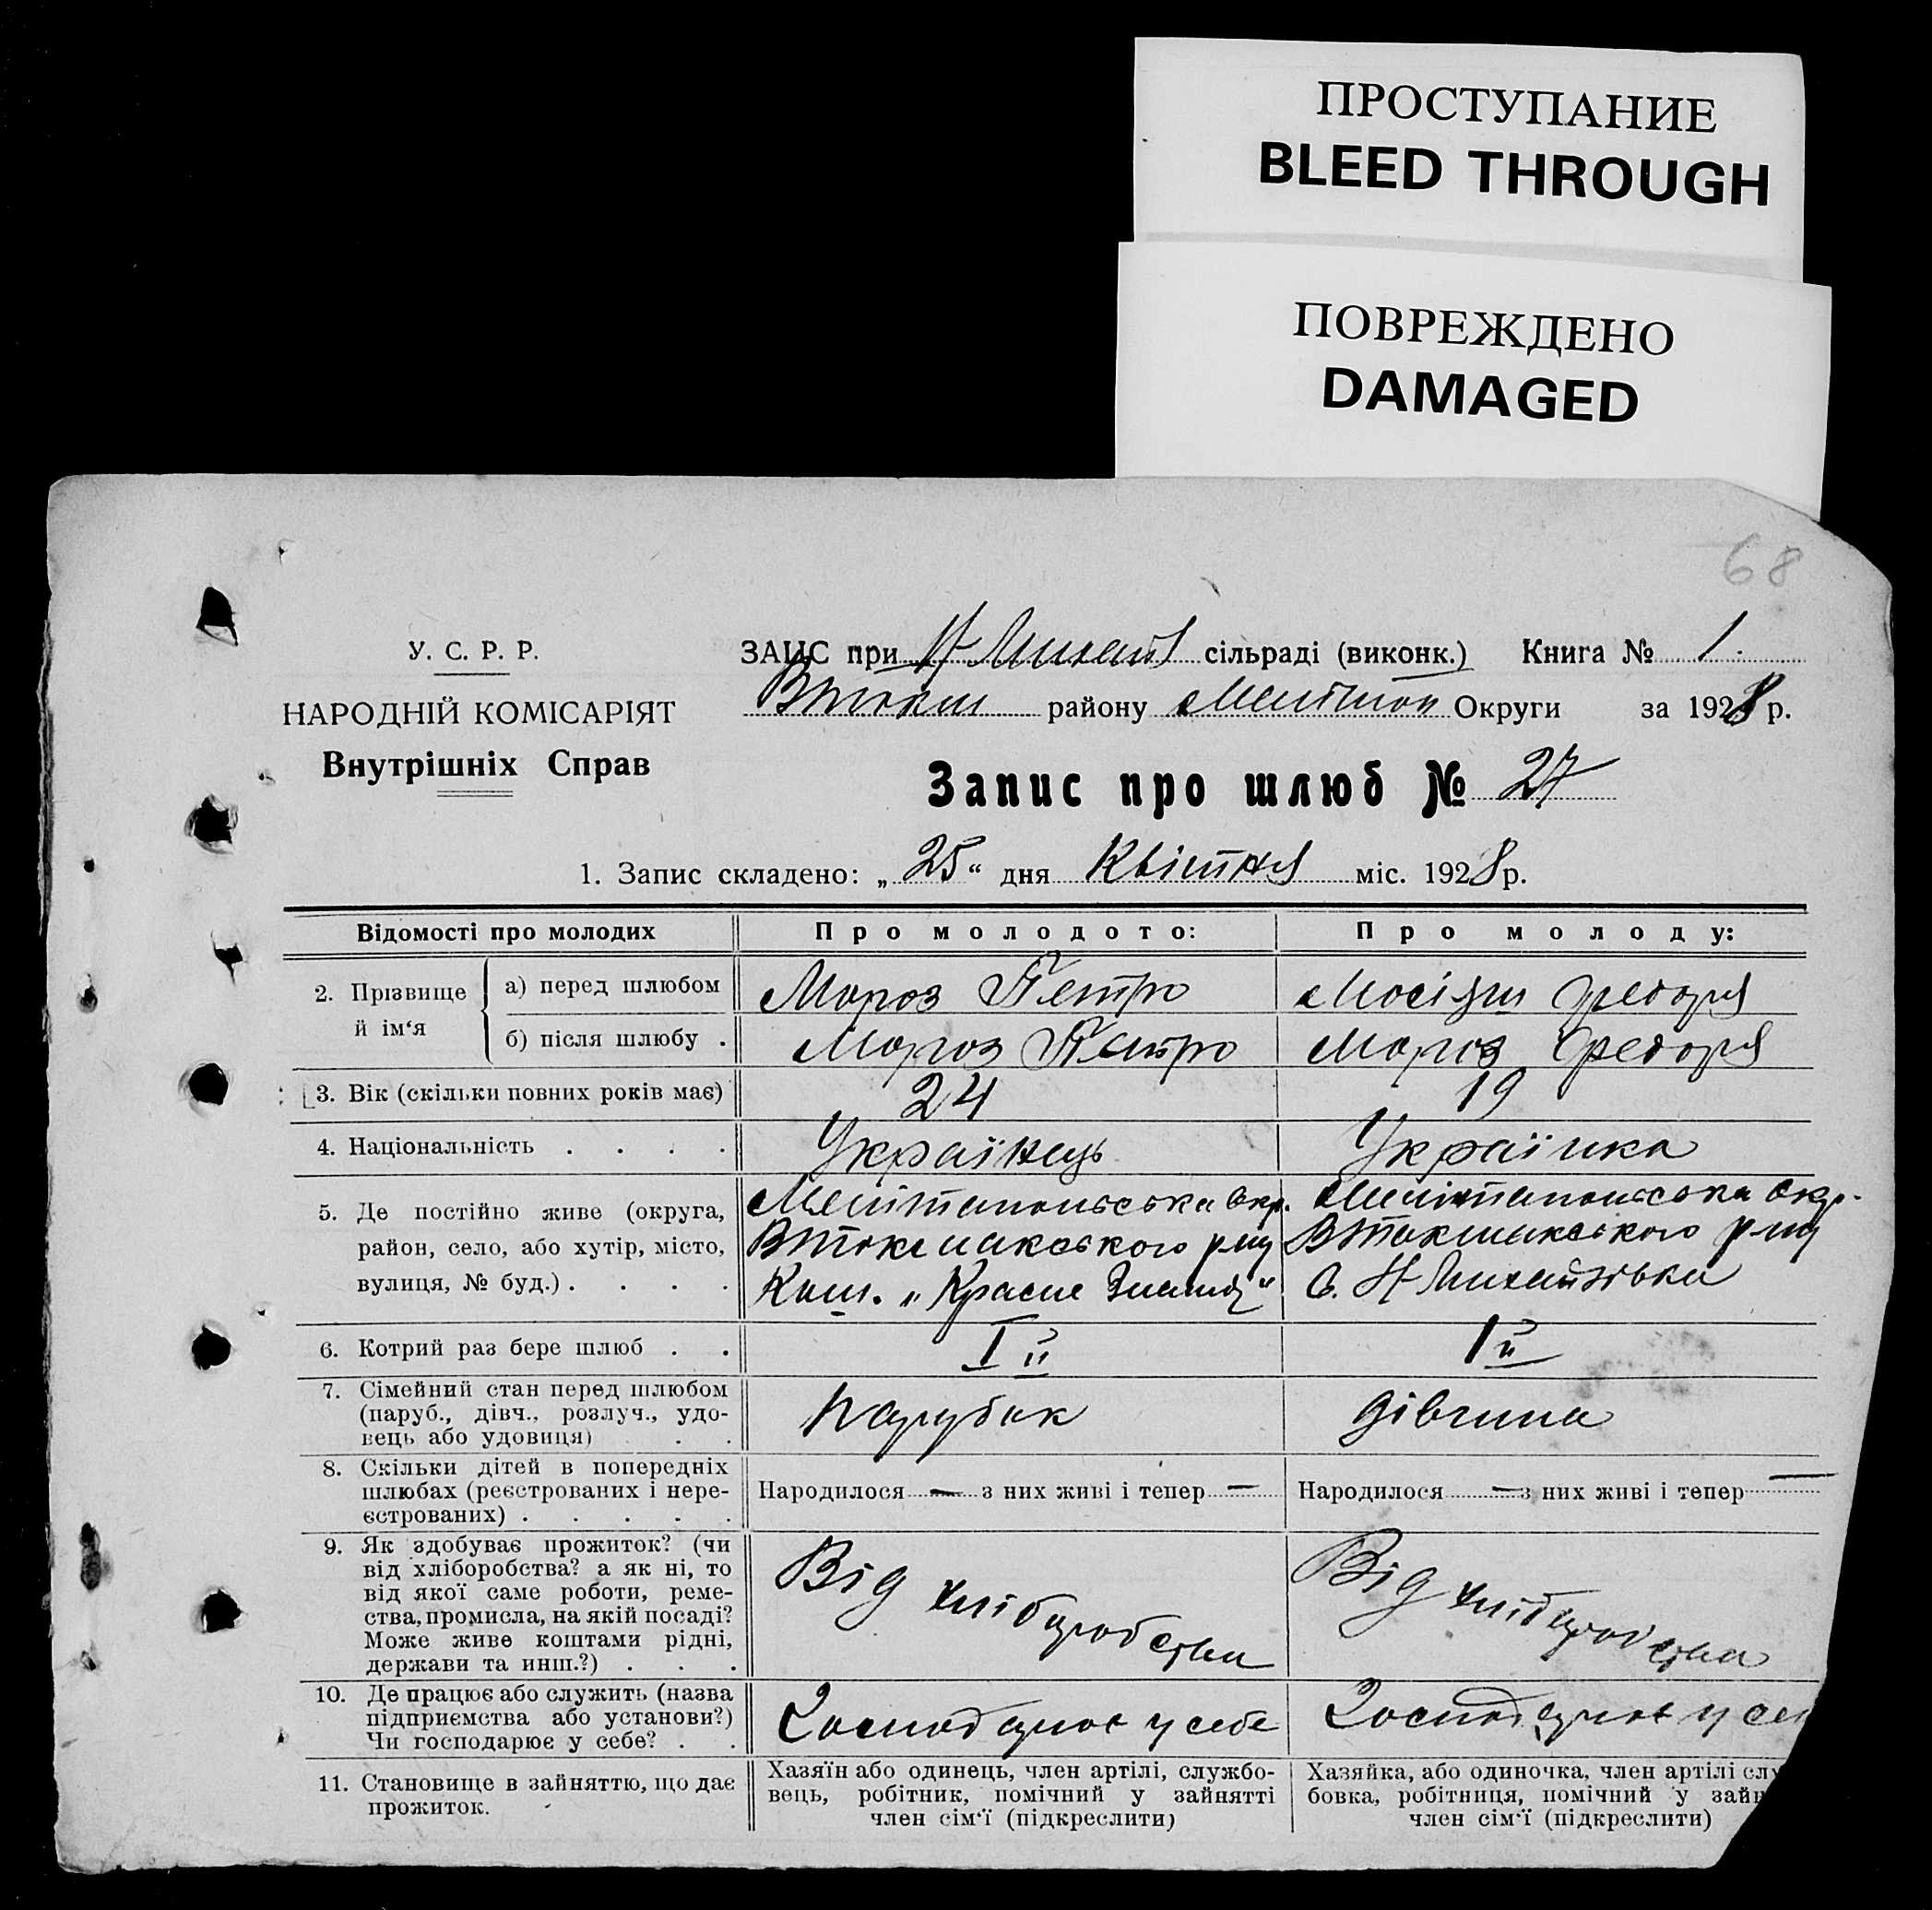 ПРОСТУПАНИЕ
BLEED THROUGH
ПОВРЕЖДЕНО
DAMAGED
68
У. С. Р. Р.
НАРОДНІЙ КОМІСАРІЯТ
Внутрішніх Справ
ЗАЦС при Н Михайл сільраді (виконк.) Книга № 1.
ВТокм району Меліт Округи за 1928 р.
Запис про шлюб № 27
1. Запис складено: „25“ дня Квітня міс. 1928 р.
Відомості про молодих Про молодого: Про молоду:
2. Прізвище й ім‘я
а) перед шлюбом Мороз Петро Федора
б) після шлюбу . Мороз Петро Мороз Федора
3. Вік (скільки повних років має) 24 19
4. Національність . . . . Українець Українка
5. Де постійно живе (округа, район, село, або хутір, місто, вулиця, № буд.) . . . .
Мелітопольська Окр.
ВТокмакського р-ну
Ком. „Красне Знамя“
Мелітопольська Окр.
ВТокмакського р-ну
С. Н Михайлівка
6. Котрий раз бере шлюб . . I й I й
7. Сімейний стан перед шлюбом
(паруб., дівч., розлуч., удо-
вець або удовиця) . . Парубок Дівчина
8. Скільки дітей в попередніх
шлюбах (реєстрованих і нере-
єстрованих) . . . . .
Народилося — з них живі і тепер —
Народилося — з них живі і тепер —
9. Як здобуває прожиток? (чи
від хліборобства? а як ні, то
від якої саме роботи, реме-
ства, промисла, на якій посаді?
Може живе коштами рідні,
держави та инш.?) . . .
Від хліборобства
Від хліборобства
10. Де працює або служить (назва
підприємства або установи?)
Чи господарює у себе? . .
Господарює у себе
Господарює у се
11. Становище в зайняттю, що дає
прожиток.
Хазяїн або одинець, член артілі, службо-
вець, робітник, помічний у зайнятті
член сім‘ї (підкреслити)
Хазяйка, або одиночка, член артілі слу
бовка, робітниця, помічний у зайн
член сім‘ї (підкреслити)